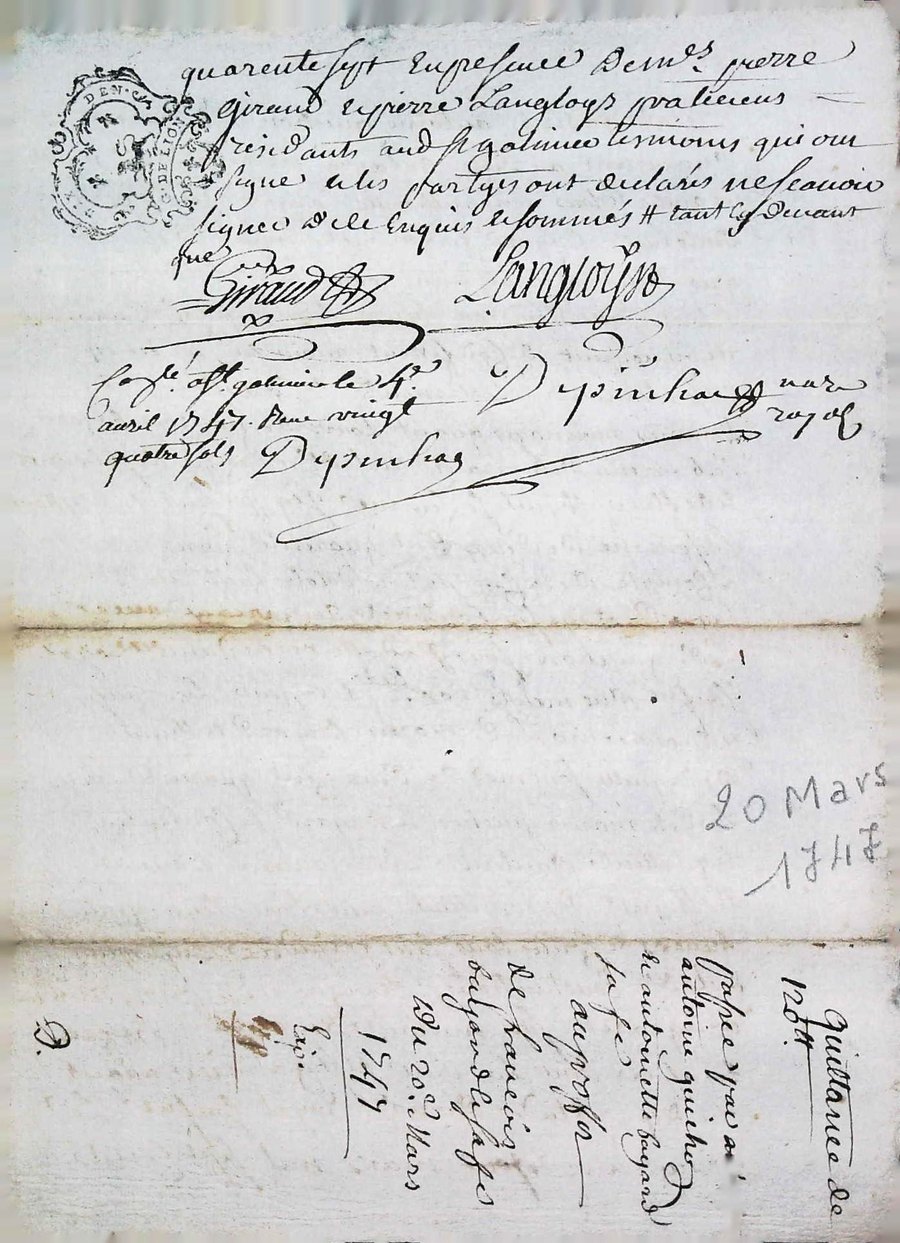 DEN.
G. DE LION
quarente sept en presence de mes. pierre
Giraud et pierre Langloys praticiens
residants aud st galmier tesmoins qui ont
signé et les partyes ont declarés ne scavoir
signer de ce enquis et sommés tant cy devant
que
Giraud
Langloys
Conle. a st. galmier le 4e.
avril 1747. Reçu vingt
quatre sols
Depinhac
Depinhac notre
royal
20 Mars
1747
Quittance de
120 ₶.
passee par
antoine guichon
et antoinette bayard
sa fe
au proffit
de francois
bayon de
Du 20e. Mars
1747
Exp.
D.